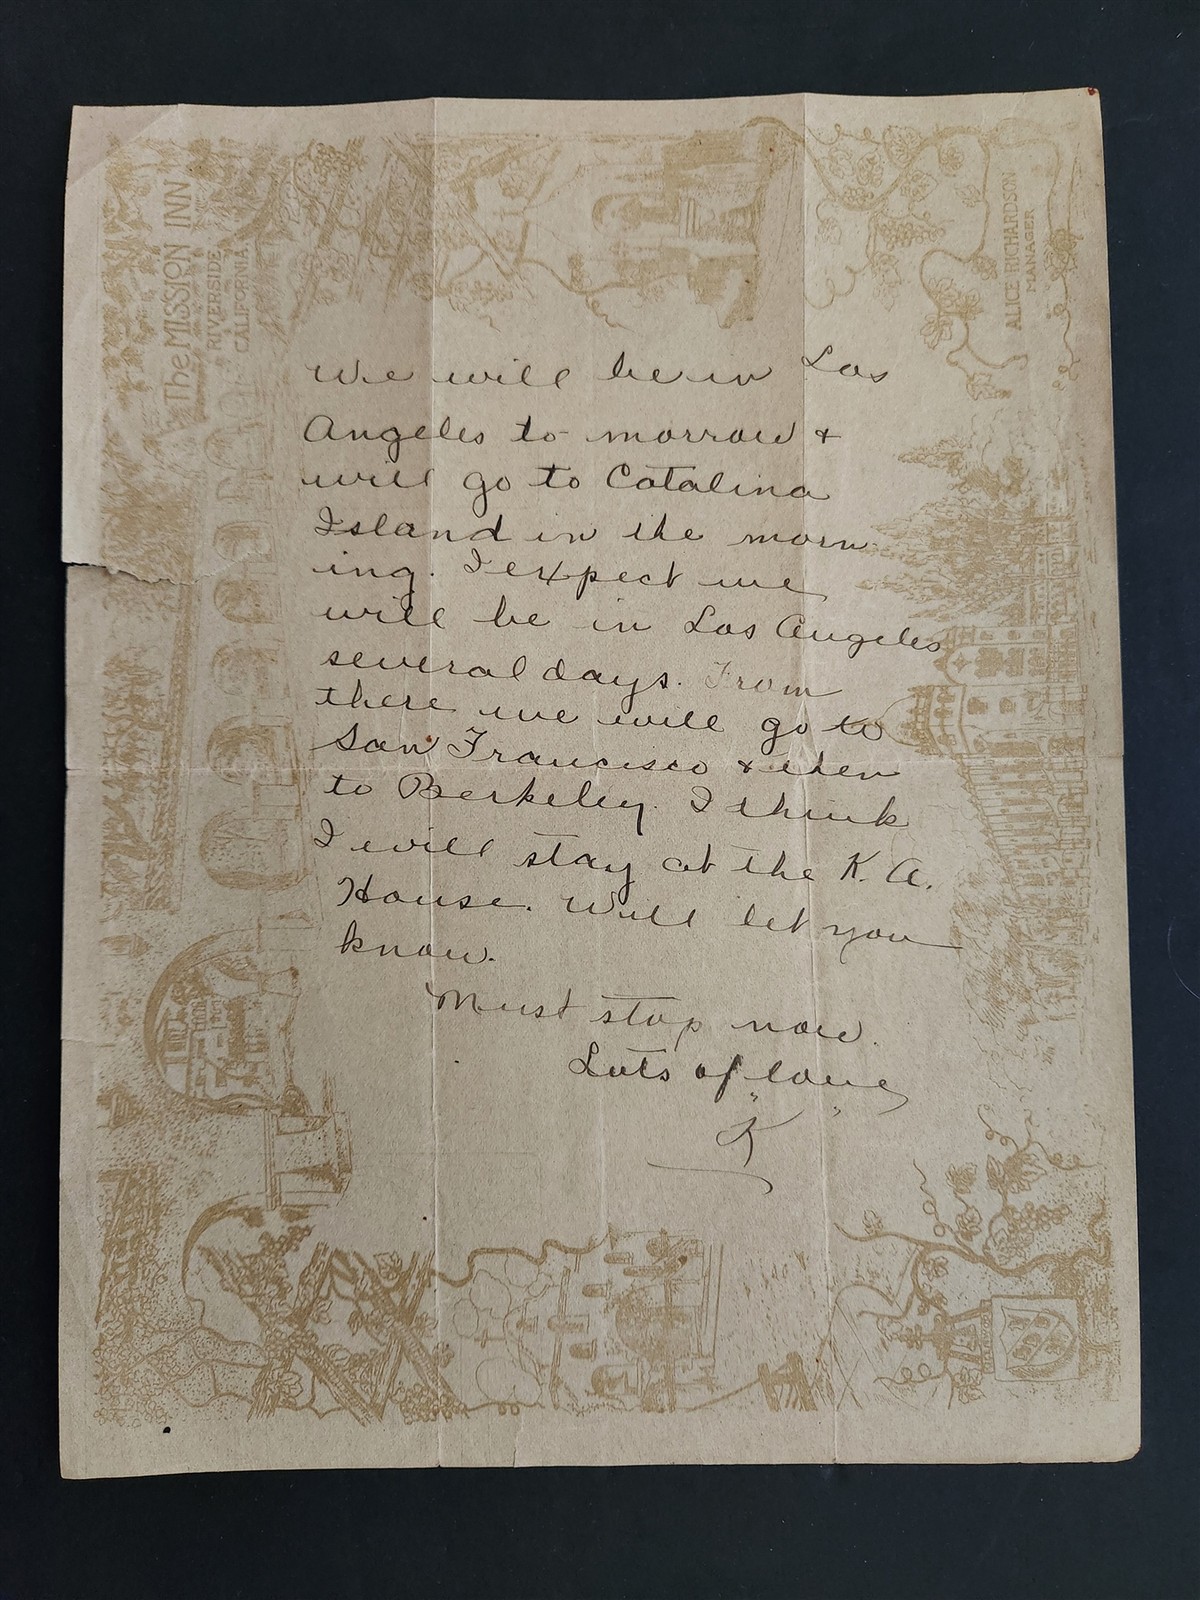 The MISSION INN
RIVERSIDE
CALIFORNIA
ALICE RICHARDSON
MANAGER
We will be in Los
Angeles to-morrow &
will go to Catalina
Island in the morn-
ing. I expect we
will be in Los Angeles
several days. From
there we will go to
San Francisco & then
to Berkeley. I think
I will stay at the K. A.
House. Will let you
know.
Must stop now.
Lots of love,
"K"